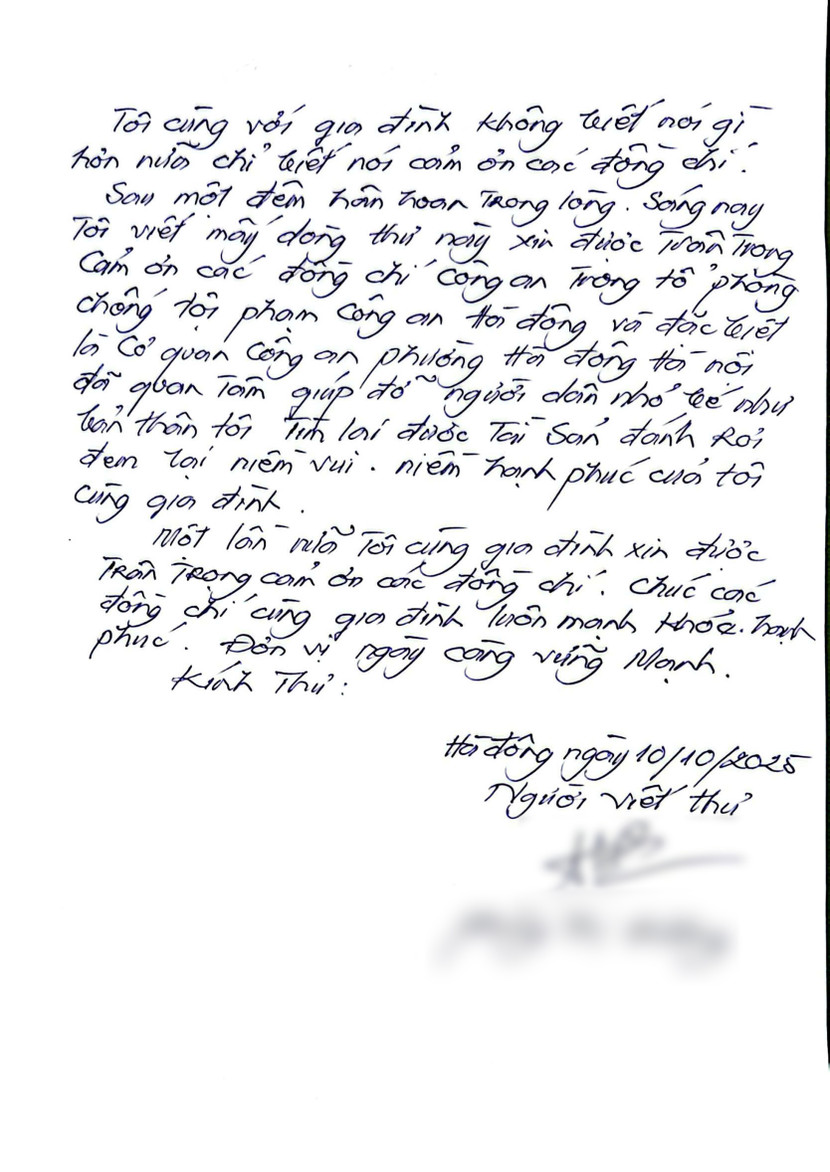 Tôi cùng với gia đình không biết nói gì
hơn nữa chỉ biết nói cảm ơn các đồng chí.
Sau một đêm hân hoan Trong lòng. Sáng nay
Tôi viết mấy dòng thư này xin được Trân Trọng
Cảm ơn các đồng chí công an Trong tổ phòng
chống tội phạm công an Hà đông và đặc biệt
là cơ quan công an phường Hà đông Hà nội
đã quan Tâm giúp đỡ người dân nhỏ bé như
bản thân tôi Tìm lại được Tài Sản đánh Rơi
đem lại niềm vui. niềm hạnh phúc của tôi
cùng gia đình.
Một lần nữa Tôi cùng gia đình xin được
Trân Trọng cảm ơn các đồng chí. chúc các
đồng chí cùng gia đình luôn mạnh khỏe. hạnh
phúc. Đơn vị ngày càng vững Mạnh.
Kính Thư:
Hà đông ngày 10/10/2025
Người viết thư